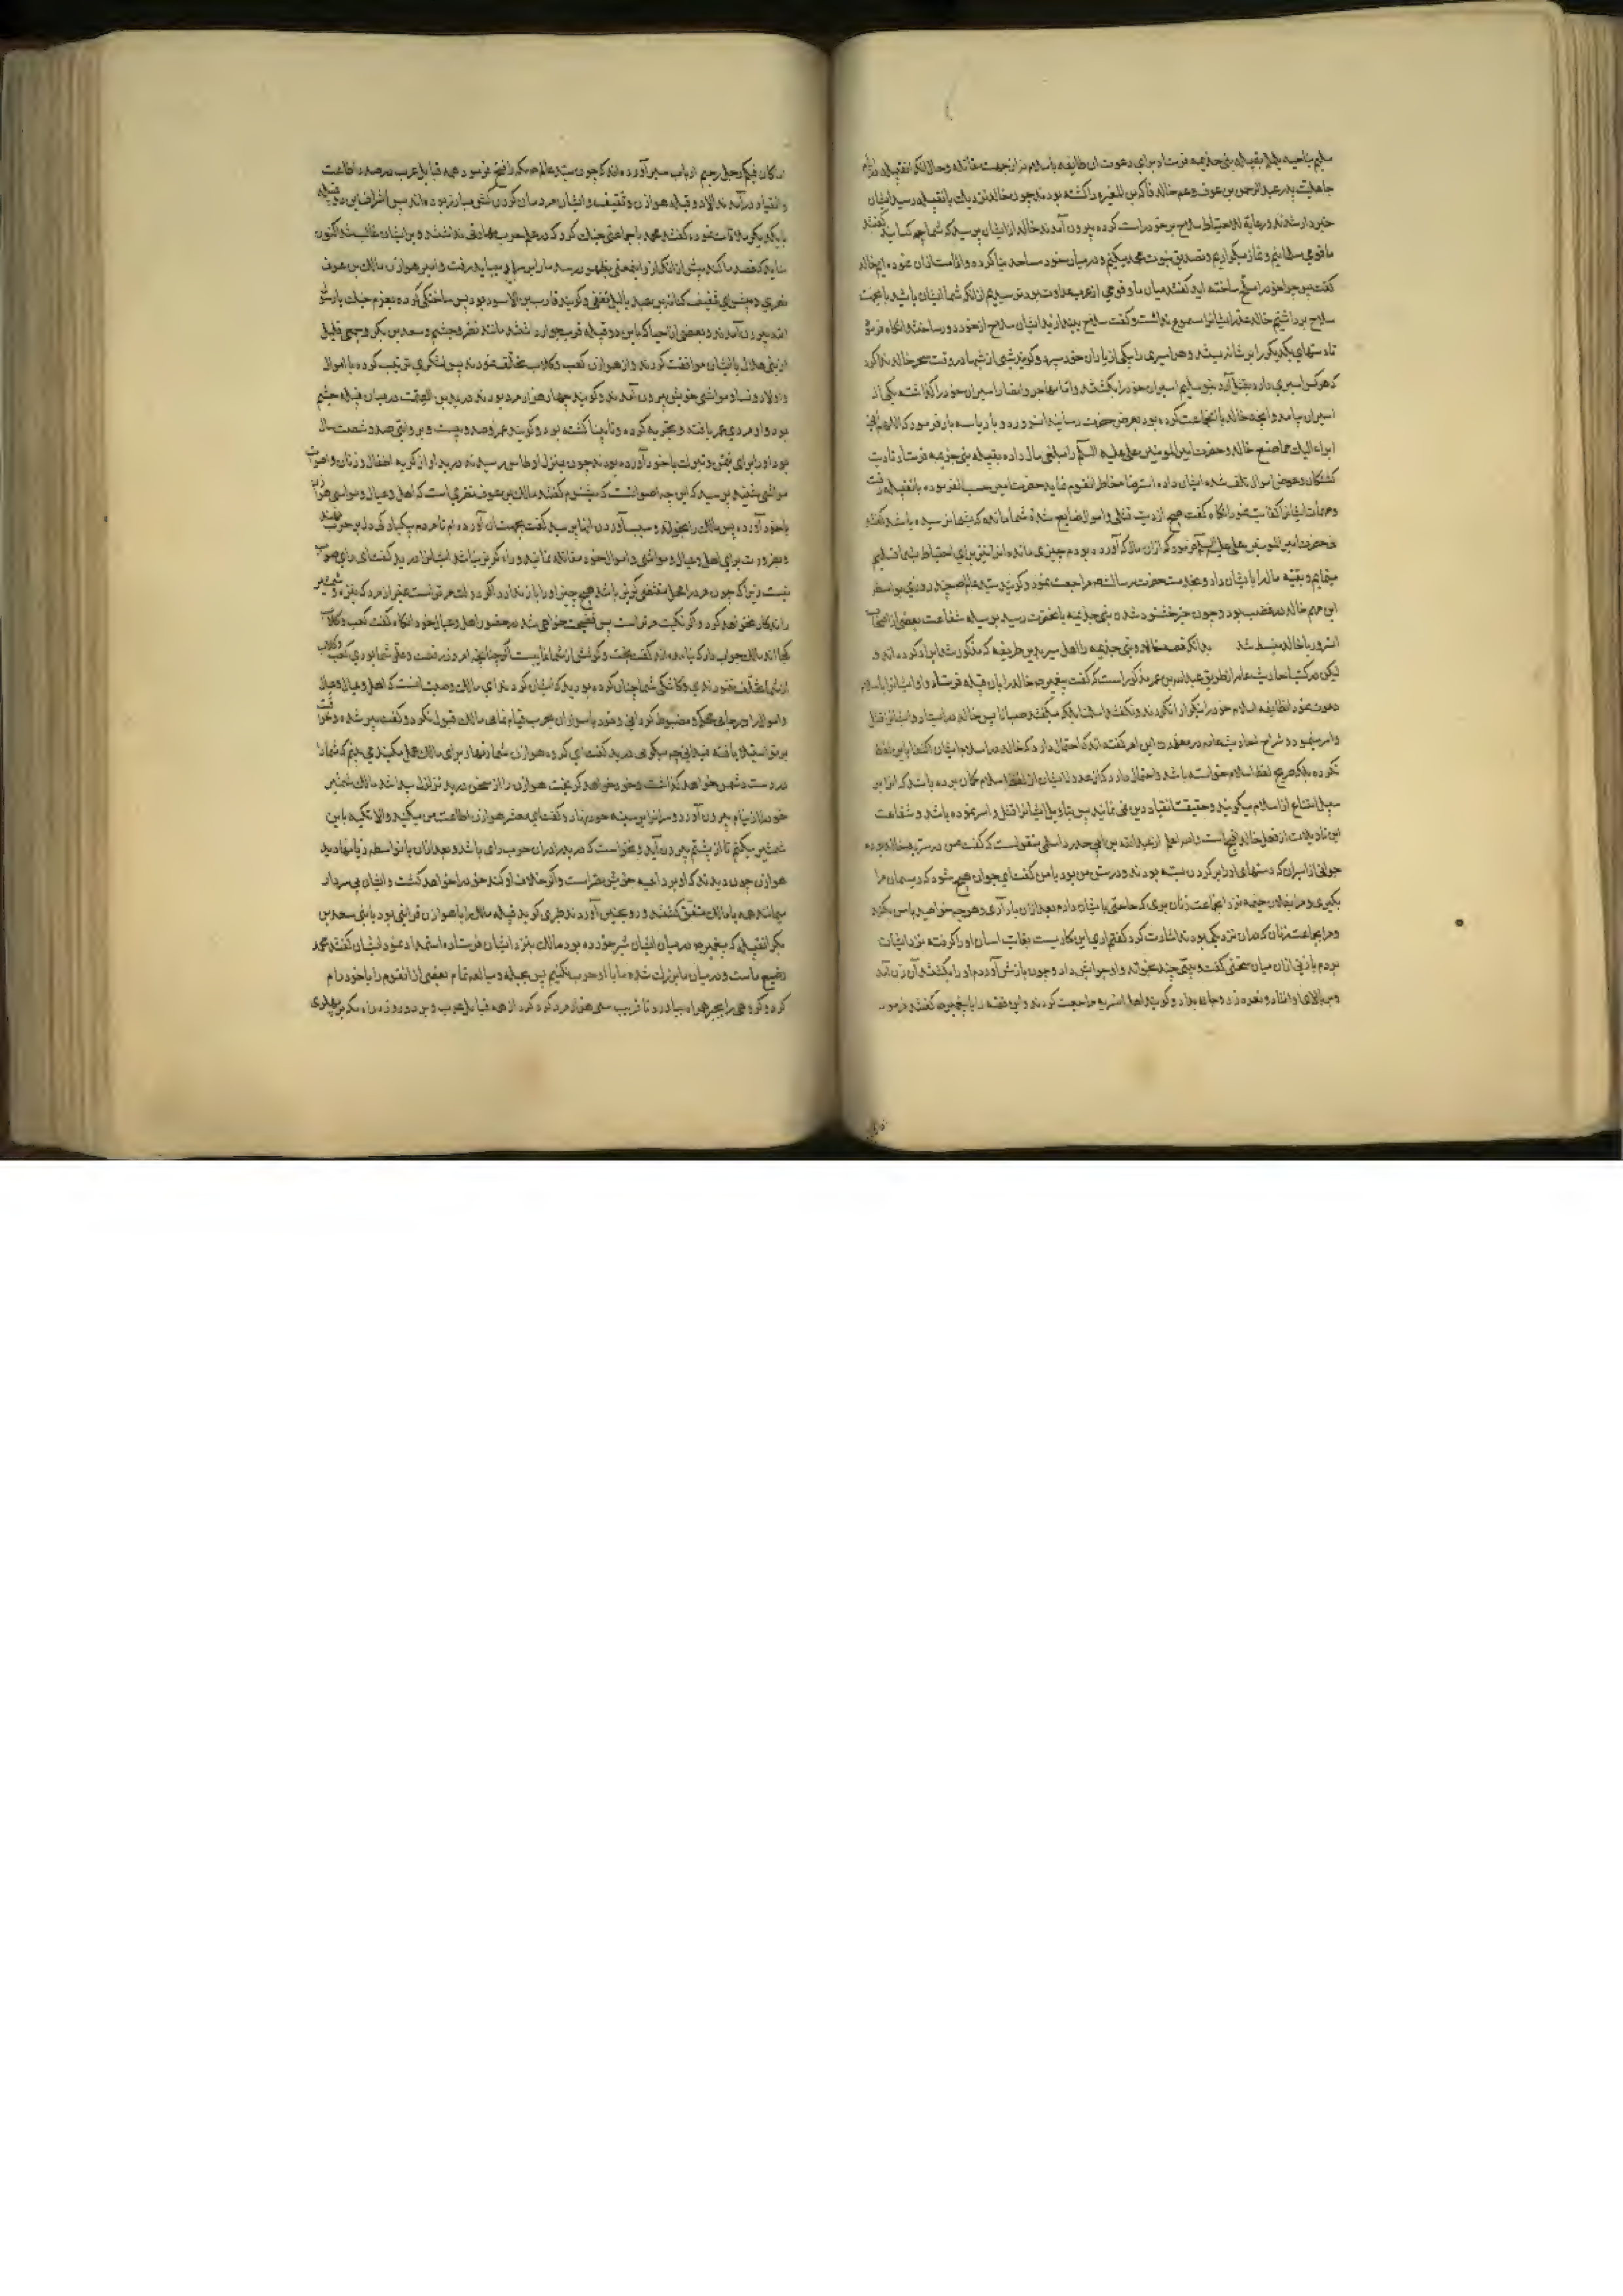 سلیم بناحیه یلملم بقبیله بنی جذیمه فرستاد برای دعوت ان طایفه باسلام نه از جهت مقاتله وحال انکه انقبیله در ایام
جاهلیت پدر عبدالرحمن بن عوف وعم خالد فاکه بن المغیره را کشته بودند چون خالد نزدیک بانقبیله رسید ایشان
خبردار شدند ورعایة للاحتیاط سلاح بر خود راست کرده بیرون آمدند خالد از ایشان پرسید که شما چه کسانید گفتند
ما قومی مسلمانیم ونماز میگزاریم وتصدیق بنبوت محمد میکنیم ودر میان خود مساجد بنا کرده واقامت اذان نموده ایم خالد
گفت پس چرا خود را مسلح ساخته اید گفتند میان ما وقومی از عرب عداوت بود ترسیدیم از انکه شما ایشان باشید باینجهت
سلاح برداشتیم خالد عذر ایشانرا مسموع نداشت وگفت سلاح بیندازید ایشان سلاح از خود دور ساختند انگاه فرمود
تا دستهای یکدیگر را بر شانه بستند وهر اسیری را بیکی از یاران خود سپرد وگویند شبی از شبها در وقت سحر خالد ندا کرد
که هرکس اسیری دارد بقتل آرد بنو سلیم اسیران خود را بکشتند واما مهاجر وانصار اسیران خود را گذاشتند یکی از
اسیران بیامد وانچه خالد با انجماعت کرده بود بعرض حضرت رسانید انسرور دو بار یا سه بار فرمود که اللهم انی
ابراء الیک مما صنع خالد وحضرت امیرالمومنین علی علیه السلام را مبلغی مال داده بقبیله بنی جذیمه فرستاد تا دیت
کشتگان وعوض اموال تلف شده ایشان داده استرضاء خاطر انقوم نماید حضرت امیر حسب الفرموده بانقبیله رفت
ومهمات ایشانرا کفایت نمود انگاه گفت هیچ از دیت قتلی واموال ضایع شده شما مانده که بشما نرسیده باشد گفتند نه
حضرت امیرالمومنین علی علیه السلام فرمود که از ان مال که آورده بودم چیزی مانده انرا نیز برای احتیاط بشما تسلیم
مینمایم وبقیه مال را بایشان داد وبخدمت حضرت رسالت ص مراجعت نمود وگویند سید عالم ص چند روزی بواسطه
این مهم خالد در غضب بود وچون خبر خشنود شدن بنی جذیمه بانحضرت رسید بوسیله شفاعت بعضی از اصحاب
انسرور با خالد منبسط شد بدانکه قصه خالد وبنی جذیمه را اهل سیر بدین طریقه که مذکور شد ایراد کرده اند و
لیکن در کتب احادیث عامه از طریق عبدالله بن عمر مذکور است که گفت پیغمبر ص خالد را بان قبیله فرستاد واو ایشانرا باسلام
دعوت نمود انطایفه اسلام خود را نیکو ادا نکردند ونگفتند اسلمنا بلکه میگفتند صبانا پس خالد در ایستاد وایشانرا قتل
واسر مینمود وشراح احادیث عامه در معذرت این امر گفته اند که احتمال دارد که خالد در اسلام ایشان اکتفا باین لفظ
نکرده بلکه صریح لفظ اسلام خواسته باشد واحتمال دارد که از عدول ایشان از لفظ اسلام گمان برده باشد که انرا بر
سبیل امتناع از اسلام میگویند وحقیقت انقیاد دین نمی نمایند پس بتاویل ایشانرا قتل واسر نموده باشد وشفاعت
این تاویلات از فعل خالد اقبح است والله اعلم از عبدالله بن ابی حدرد اسلمی منقول است که گفت من در سریه خالد بودم
جوانی از اسیران که دستهای او را بر گردن بسته بودند ودر پیش من بود با من گفت ای جوان هیچ شود که ریسمان مرا
بگیری ومرا نزد انجماعت زنان بری که حاجتی بایشان دارم بعد از ان باز آری وهرچه خواهید با من بکنید
ومر انجماعت زنان که در ان نزدیکی بودند اشارت کرد گفتم اری این کاریست بغایت اسان او را گرفته نزد ایشان
بردم با زنی از ان میان سخنی گفت وبیتی چند بخواند واو جوابش داد وچون بازش آوردم او را بکشتند آن زن آمد
وبر بالای او افتاد ونعره زد وجان بداد وگویند اهل سریه مراجعت کردند واین قصه را با پیغمبر ص گفتند فرمود
اما کان فیکم رجل رحیم ارباب سیر آورده اند که چون سید عالم ص مکه را فتح فرمود همه قبایل عرب در صدد اطاعت
وانقیاد درآمدند الا دو قبیله هوازن وثقیف وایشان مردمان گردن کش مبارز بوده اند پس اشراف این دو قبیله
با یکدیگر ملاقات نموده گفتند محمد با جماعتی جنگ کرد که در علم حرب مهارتی نداشتند وبر ایشان غالب شد اکنون
شاید که قصد ما کند پیش از انکه از او اینمعنی بظهور رسد ما را بر سر او میباید رفت وامیر هوازن مالک بن عوف
نصری وپیشوای ثقیف کنانه بن عبد یالیل ثقفی وگویند قارب بن الاسود بود پس ساختگی کرده بعزم جنگ با رسول
الله بیرون آمدند وبعضی از احیا که با این دو قبیله قرب جوار داشتند مانند نصر وجشم وسعد بن بکر وجمعی قلیل
از بنی هلال با ایشان موافقت کردند واز هوازن کعب وکلاب تخلف نمودند پس لشکری ترتیب کرده با اموال
واولاد ونسا ومواشی خویش بیرون آمدند وگویند چهار هزار مرد بودند درید بن الصمت در میان قبیله جشم
بود واو مردی عمر یافته وتجربه کرده ونابینا گشته بود وگویند عمر او صد وبیست وبروایتی صد وشصت سال
بود او را برای تیمن وتبرک با خود آورده بودند چون بمنزل اوطاس رسیدند درید آواز گریه اطفال وزنان واصوات
مواشی شنید پرسید که این چه اصواتست که میشنوم گفتند مالک بن عوف نصری است که اهل وعیال ومواشی همراه
با خود آورده پس مالک را بخواند وسبب آوردن اینها پرسید گفت بجهت آن آورده ام تا مردم بیکبار دل بر حرب نهند
وبضرورت برای اهل وعیال ومواشی واموال خود مقاتله نمایند وراه گریز نیابند درید گفت ای رای صواب
نیست زیرا که چون مرد را محل مقتضی گریز باشد هیچ چیز او را باز ندارد اگر دولت مر تراست غیر از مرد که بنیزه وشمشیر
راند کار نخواهد کرد واگر نکبت مر تراست پس فضیحت خواهی شد در حضور اهل وعیال خود انگاه گفت کعب وکلاب
کجا اند مالک جواب داد که نیامده اند گفت بخت وکوشش از شما غایبست اگر چنانچه امروز روز رفعت وعلو شما بودی کعب وکلاب
از شما تخلف ننمودندی وکاشکی شما چنان کرده بودید که ایشان کردند ای مالک وصیت انست که اهل وعیال
واموال را در جای محکم ومضبوط گردانی وخود با سواران بحرب قیام نمایی مالک قبول نکرد وگفت پیر شده وخرافت
بر تو استیلا یافته نمیدانی چه میگویی درید گفت ای گروه هوازن شما را تنها برای مالک عمل میکنید می بینم که شما را
در دست دشمن خواهد گذاشت وخود خواهد گریخت هوازن را از سخن درید تزلزل پیدا شد مالک شمشیر
خود را از نیام بیرون آورد وسر انرا بر سینه خود نهاد وگفت ای معشر هوازن اطاعت من میکنید والا تکیه باین
شمشیر میکنم تا از پشتم بیرون آید ونخواست که درید را در ان حرب رای باشد وبعد از ان
هوازن چون دیدند که او بر داعیه خویش مصر است واگر خلاف او کنند خود را خواهد کشت وایشان بی سردار
میمانند همه با مالک متفق گشتند ورو بحنین آوردند طبری گوید قبیله مالک را با هوازن قرابتی بود با بنی سعد بن
بکر انقبیله که پیغمبر ص در میان ایشان شیر خورده بود مالک بنزد ایشان فرستاده استمداد نمود ایشان گفتند محمد
رضیع ماست ودر میان ما بزرگ شده ما با او حرب نکنیم پس بحیله ومبالغه تمام بعضی از انقوم را با خود رام
کرد وگروهی را بجبر همراه بیاورد تا قریب سی هزار مرد گرد کرد از همه قبایل عرب وبر دو روزه راه مکه